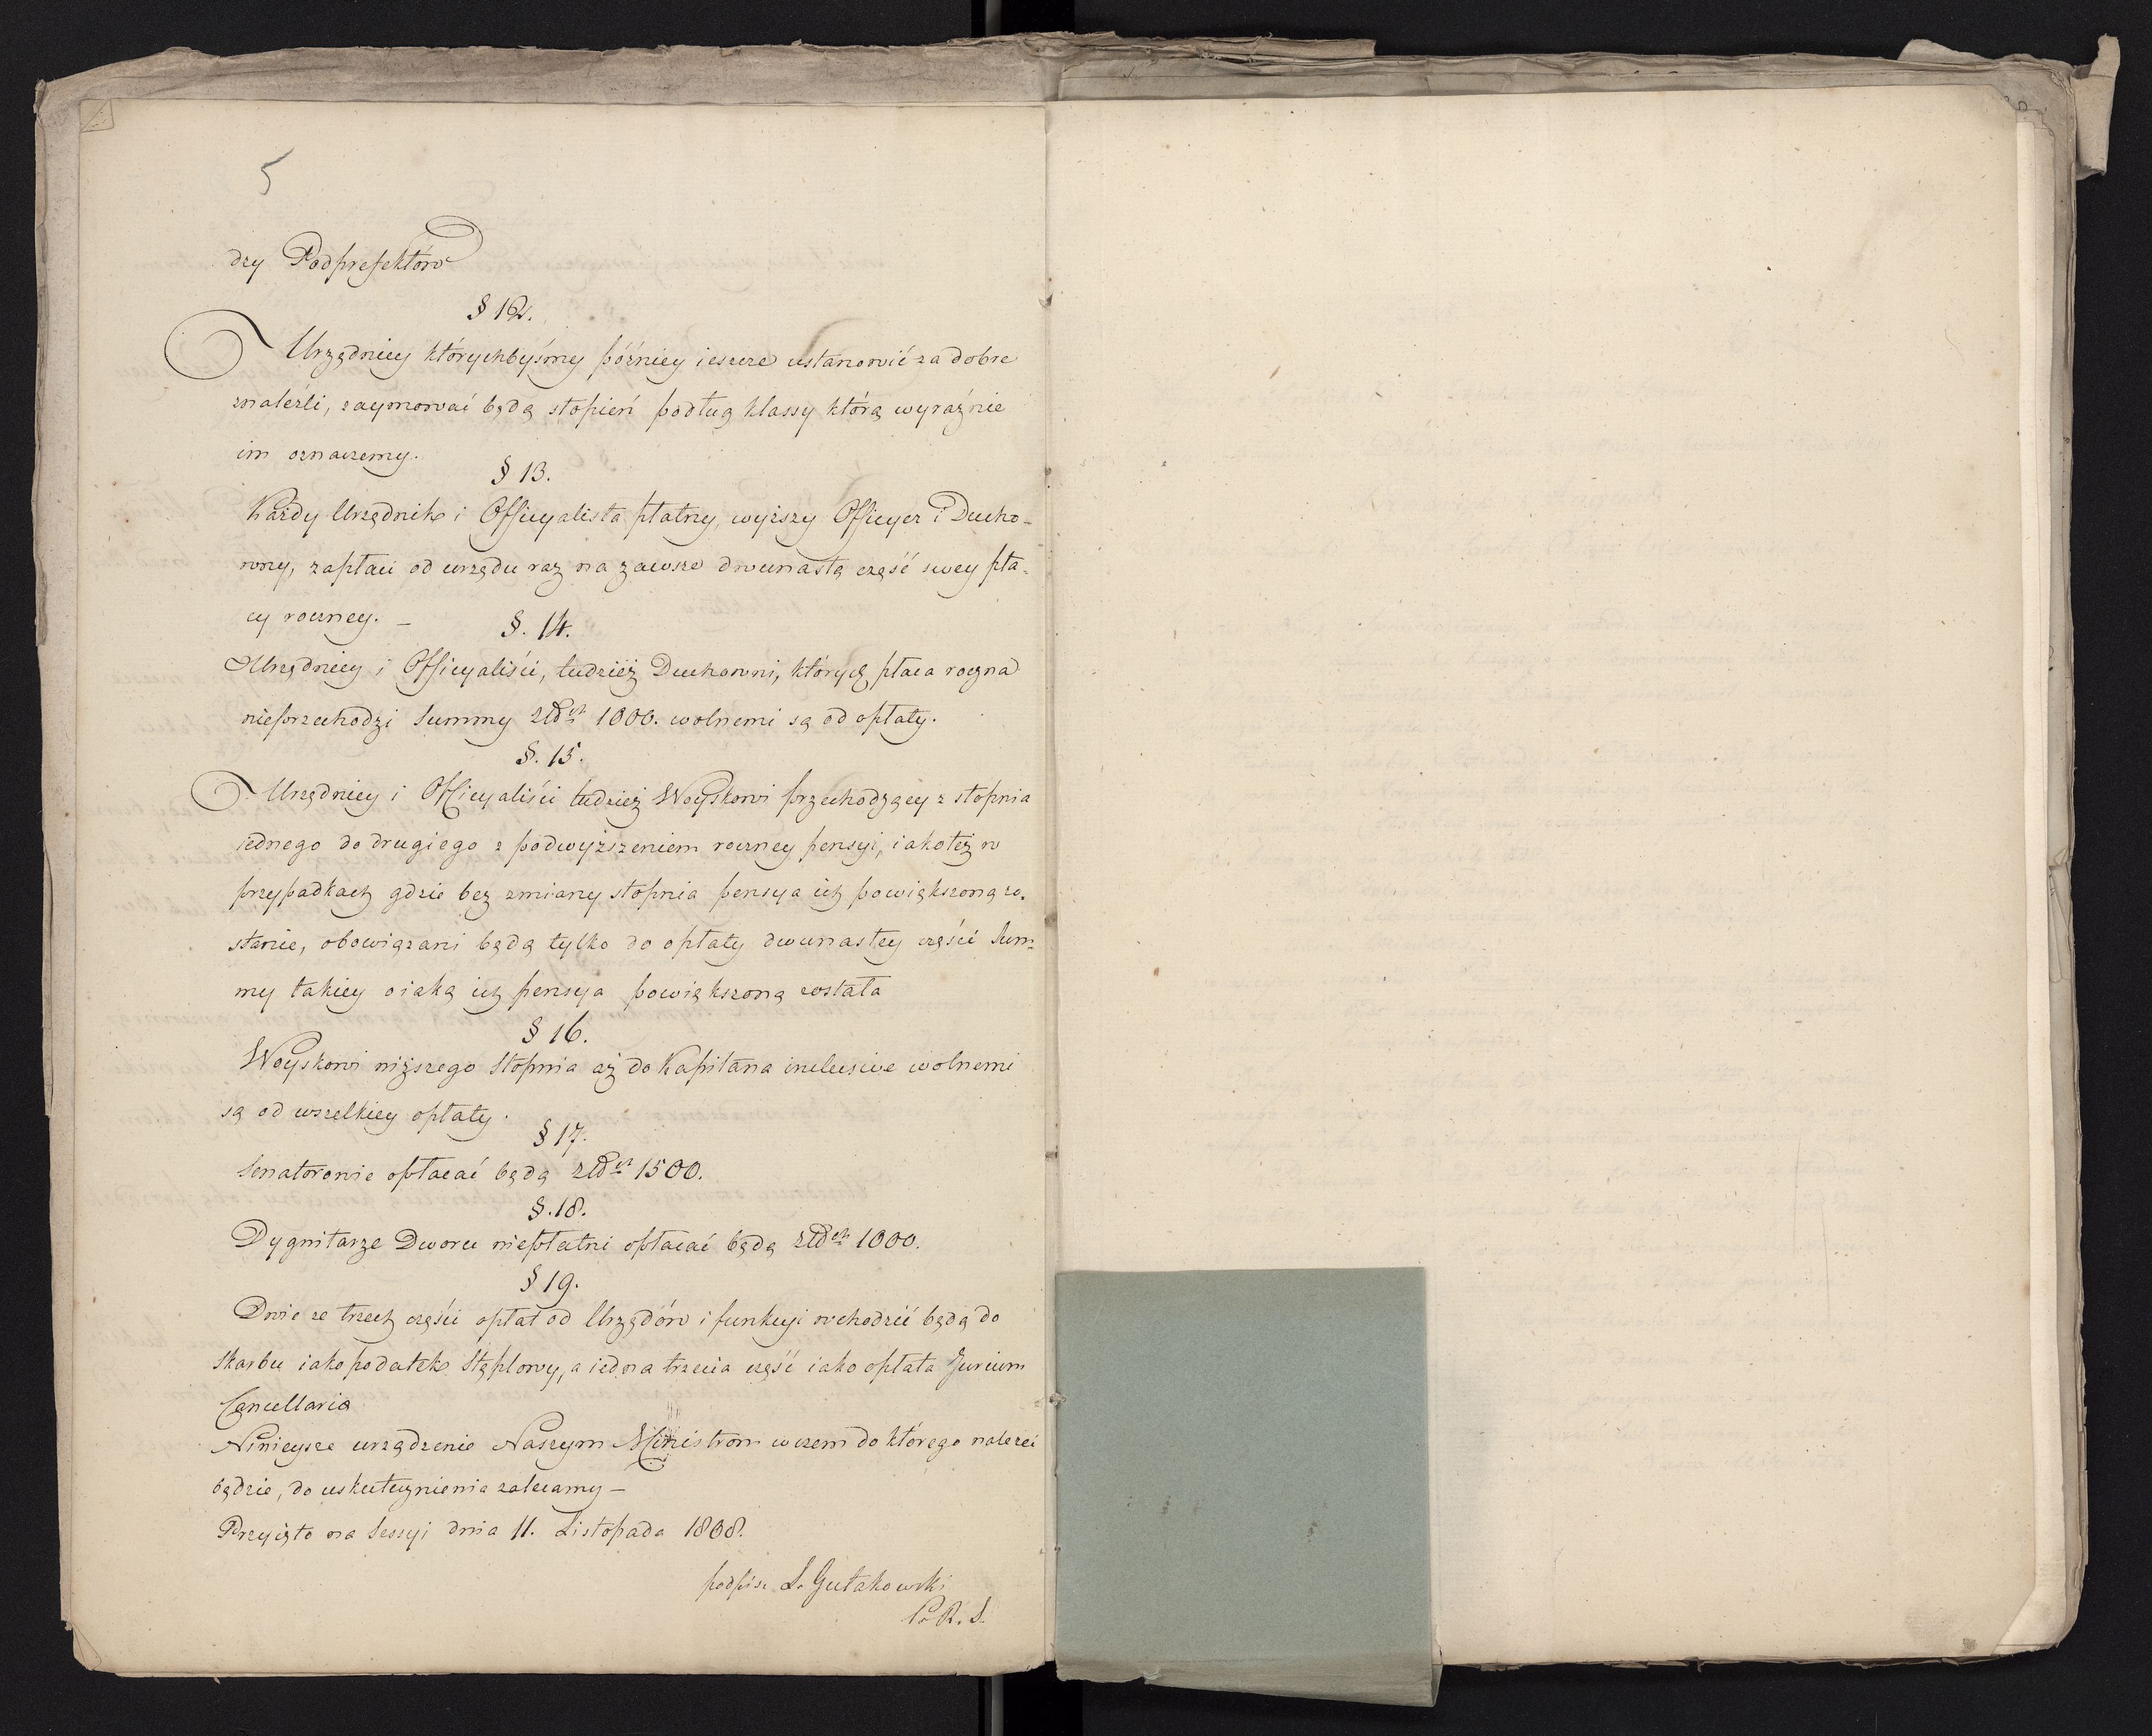 5
dzy Podprefektów
§ 12.
Urzędnicy którychbyśmy późniey ieszcze ustanowić za dobre
znaleźli, zaymować będą stopień podług klassy którą wyraźnie
im oznaczemy.
§ 13.
Każdy Urzędnik i Officyalista płatny, wyższy Officyer i Ducho-
wny, zapłaci od urzędu raz na zawsze dwunastą część swey pła-
cy roczney. –
§. 14.
Urzędnicy i Officyaliści, tudzież Duchowni, których płaca roczna
nieprzechodzi Summy złd 1000. wolnemi są od opłaty.
§. 15.
Urzędnicy i Officyaliści tudzież Woyskowi przechodzący z stopnia
iednego do drugiego z podwyższeniem roczney pensyi, iakoteż w
przypadkach gdzie bez zmiany stopnia pensya ich powiększoną zo-
stanie, obowiązani będą tylko do opłaty dwunastey części Sum-
my takiey o iaką ich pensya powiększoną została
§ 16.
Woyskowi niższego Stopnia aż do Kapitana inclusive wolnemi
są od wszelkiey opłaty.
§ 17.
Senatorowie opłacać będą złd 1500.
§. 18.
Dygnitarze Dworu niepłatni opłacać będą złd 1000.
§ 19.
Dwie ze trzech części opłat od Urzędów i funkcyi wchodzić będą do
Skarbu iako podatek Stęplowy, a iedna trzecia część iako opłata Jurium
Cancellaria
Ninieysze urządzenie Naszym Ministrom w czem do którego należeć
będzie, do uskutecznienia zalecamy –
Przyięto na Sessyi dnia 11. Listopada 1808.
podpis: L. Gutakowski
P. R. S.